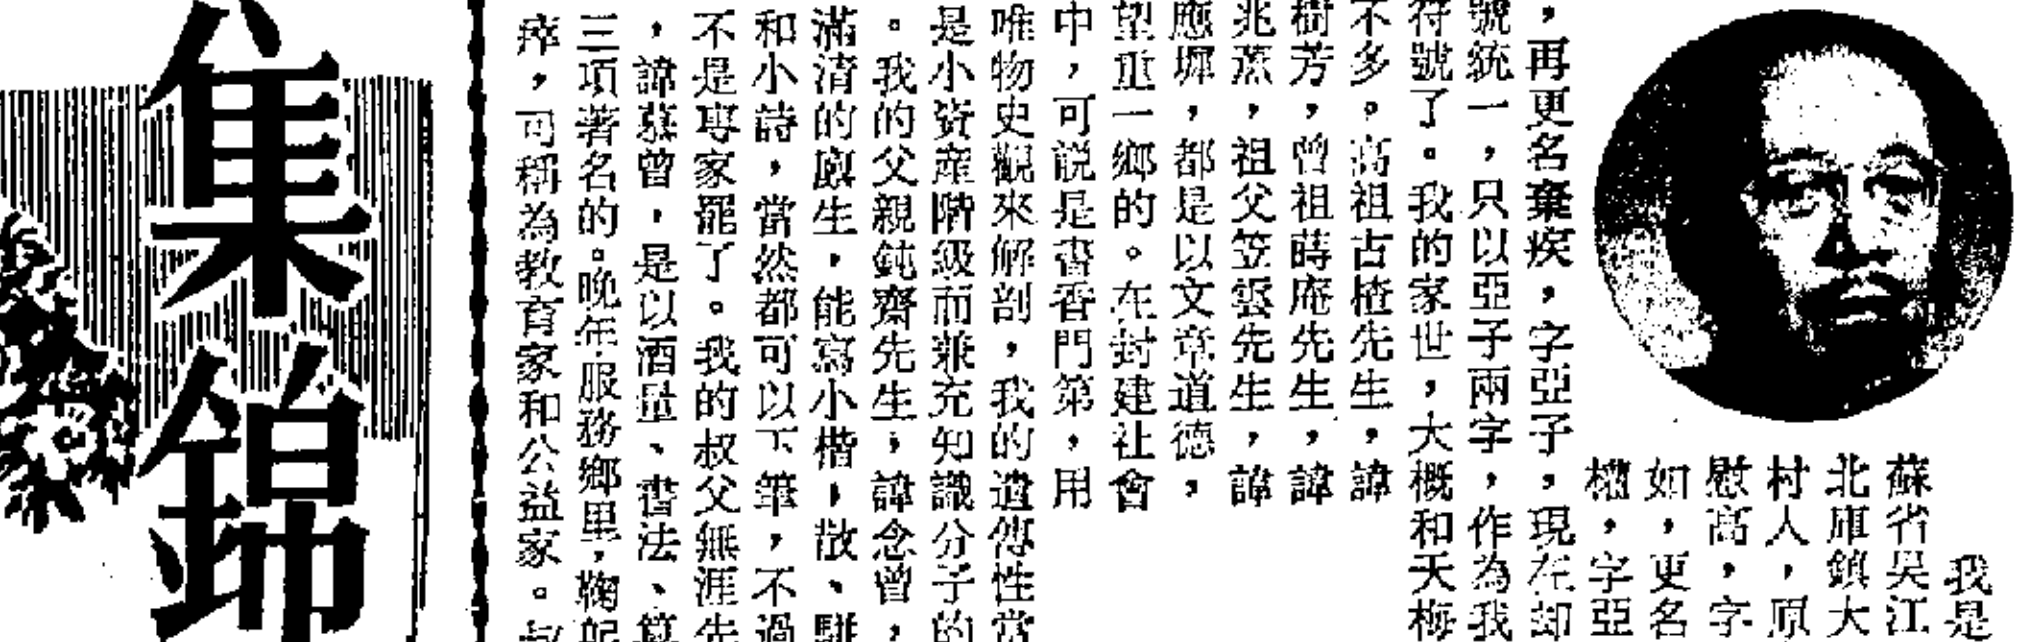 我是
蘇省吳江
北厙鎮大
村人，原
慰高，字
如，更名
權，字亞
，再更名棄疾，字亞子，現在却
號統一，只以亞子兩字，作為我
符號了。我的家世，大概和天梅
不多。高祖古楂先生，諱
樹芳，曾祖蒔庵先生，諱
兆薰，祖父笠雲先生，諱
應墀，都是以文章道德，
望重一鄉的。在封建社會
中，可說是書香門第，用
唯物史觀來解剖，我的遺傳性當
是小資產階級而兼充知識分子的
。我的父親鈍齋先生，諱念曾，
滿清的廩生，能寫小楷，散、駢
和小詩，當然都可以下筆，不過
不是專家罷了。我的叔父無涯先
，諱慕曾，是以酒量、書法、算
三項著名的。晚年服務鄉里，鞠躬
瘁，可稱為教育家和公益家。叔
集錦